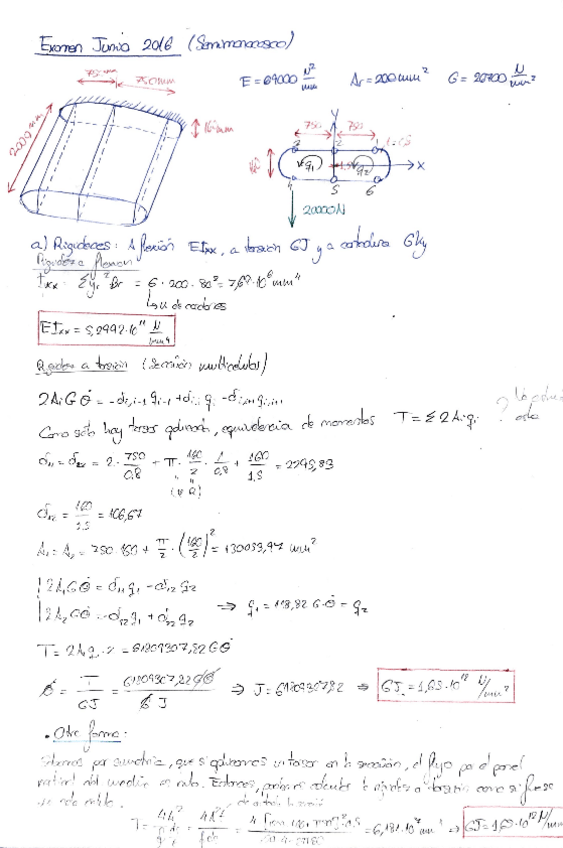 Examen Junio 2016 (Semimonocasco)
750 mm
750 mm
E = 69000 N²/mm Ar = 200 mm² G = 26700 N/mm²
2000 mm
160 mm
y
750 750
3 2 1
q₁ q₂ x
4 5 6
20000N
a) Rigideces: A flexión EIxx, a torsión GJ y a cortadura GKy
Rigidez a flexión
Ixx = Σyr² Br = 6 · 200 · 80² = 7,68·10⁶ mm⁴
↳ nº de cordones
EIxx = 5,2992·10¹¹ N/mm⁴
Rigidez a torsión (Sección multicelular)
2AiGΘ̇ = -δi,i-1 qi-1 + δi,i qi - δi,i+1 qi,i+1
Como sólo hay torsor aplicando, equivalencia de momentos T = Σ2Aiqi ?
δ11 = δ22 = 2 · 750/0,8 + π · 160/2 · 1/0,8 + 160/1,5 = 2295,83
δ12 = 160/1,5 = 106,67
A1 = A2 = 750·160 + π/2 · (160/2)² = 130053,97 mm²
2A1GΘ̇ = δ11 q1 - δ12 q2
2A2GΘ̇ = -δ12 q1 + δ22 q2 ⇒ q1 = 118,82 G·Θ̇ = q2
T = 2A1q1·2 = 61809307,82 GΘ̇
Θ̇ = T/GJ = 61809307,82 GΘ̇/GJ ⇒ J = 61809307,82 ⇒ GJ = 1,65·10¹² N/mm²
• Otra forma:
Sabemos por simetría, que si aplicamos un torsor en la sección, el flujo por el panel
vertical del medio es nulo. Entonces, podemos calcular la rigidez a torsión como si fuese
= 6,181·10⁷ mm⁴ ⇒ GJ = 1,65·10¹² N/mm